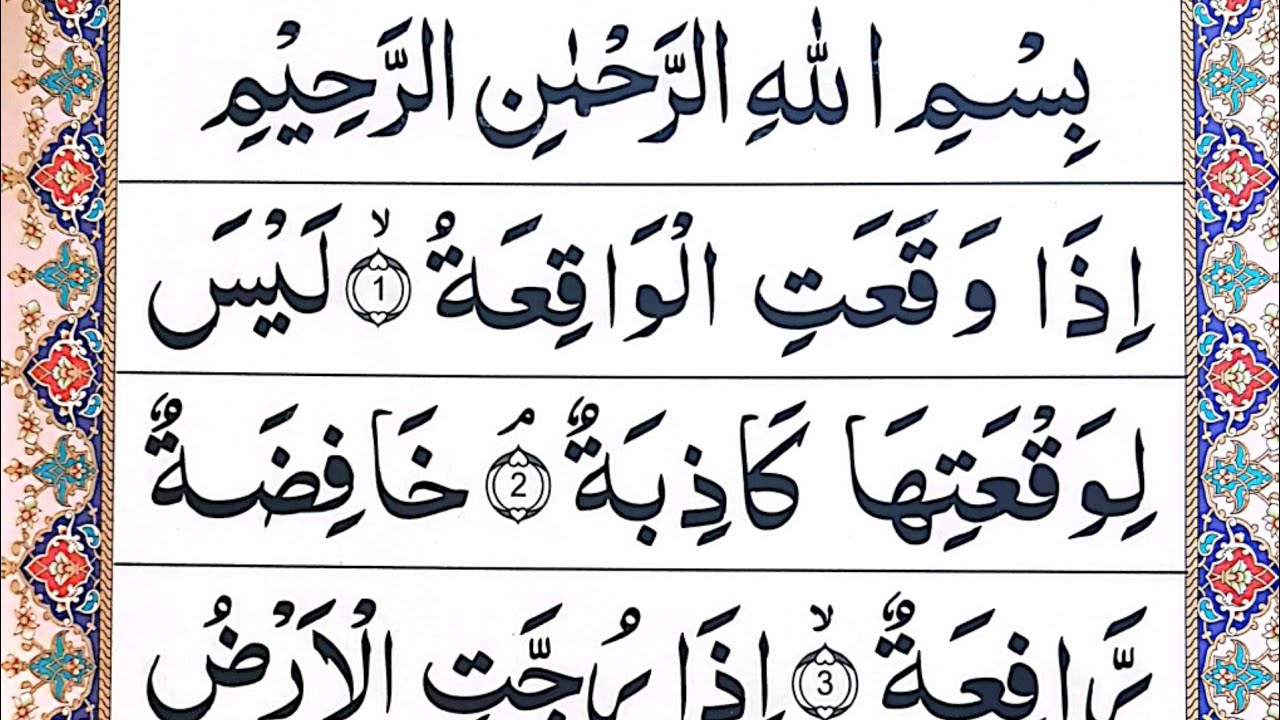 بِسْمِ اللهِ الرَّحْمٰنِ الرَّحِيْمِ
اِذَا وَقَعَتِ الْوَاقِعَةُ ۙ1 لَيْسَ
لِوَقْعَتِهَا كَاذِبَةٌ ۘ2 خَافِضَةٌ
رَّافِعَةٌ ۙ3 اِذَا رُجَّتِ الْاَرْضُ